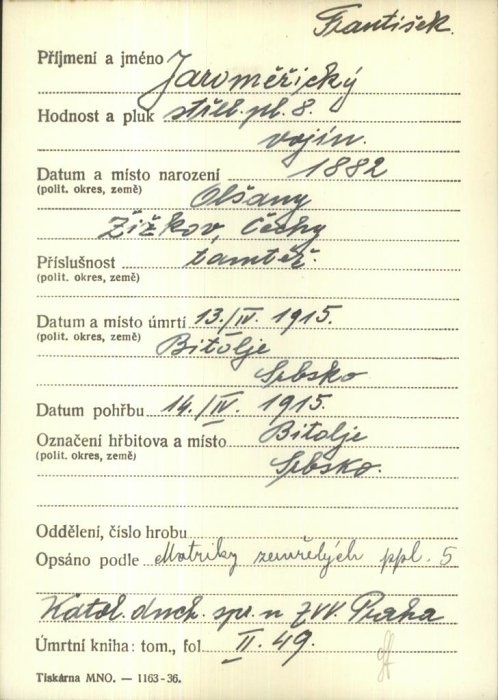 František.
Příjmení a jméno Jaroměřický
Hodnost a pluk střel. pl. 8.
vojín.
Datum a místo narození 1882
(polit. okres, země) Olšany
Žižkov, Čechy
Příslušnost tamtéž.
(polit. okres, země)
Datum a místo úmrtí 13./IV. 1915.
(polit. okres, země) Bitolje
Srbsko
Datum pohřbu 14./IV. 1915.
Označení hřbitova a místo Bitolje
(polit. okres, země) Srbsko.
Oddělení, číslo hrobu
Opsáno podle Matriky zemřelých ppl. 5
Katol. duch. spr. u ZVV. Praha
Úmrtní kniha: tom., fol. II. 49.
Tiskárna MNO. — 1163-36.